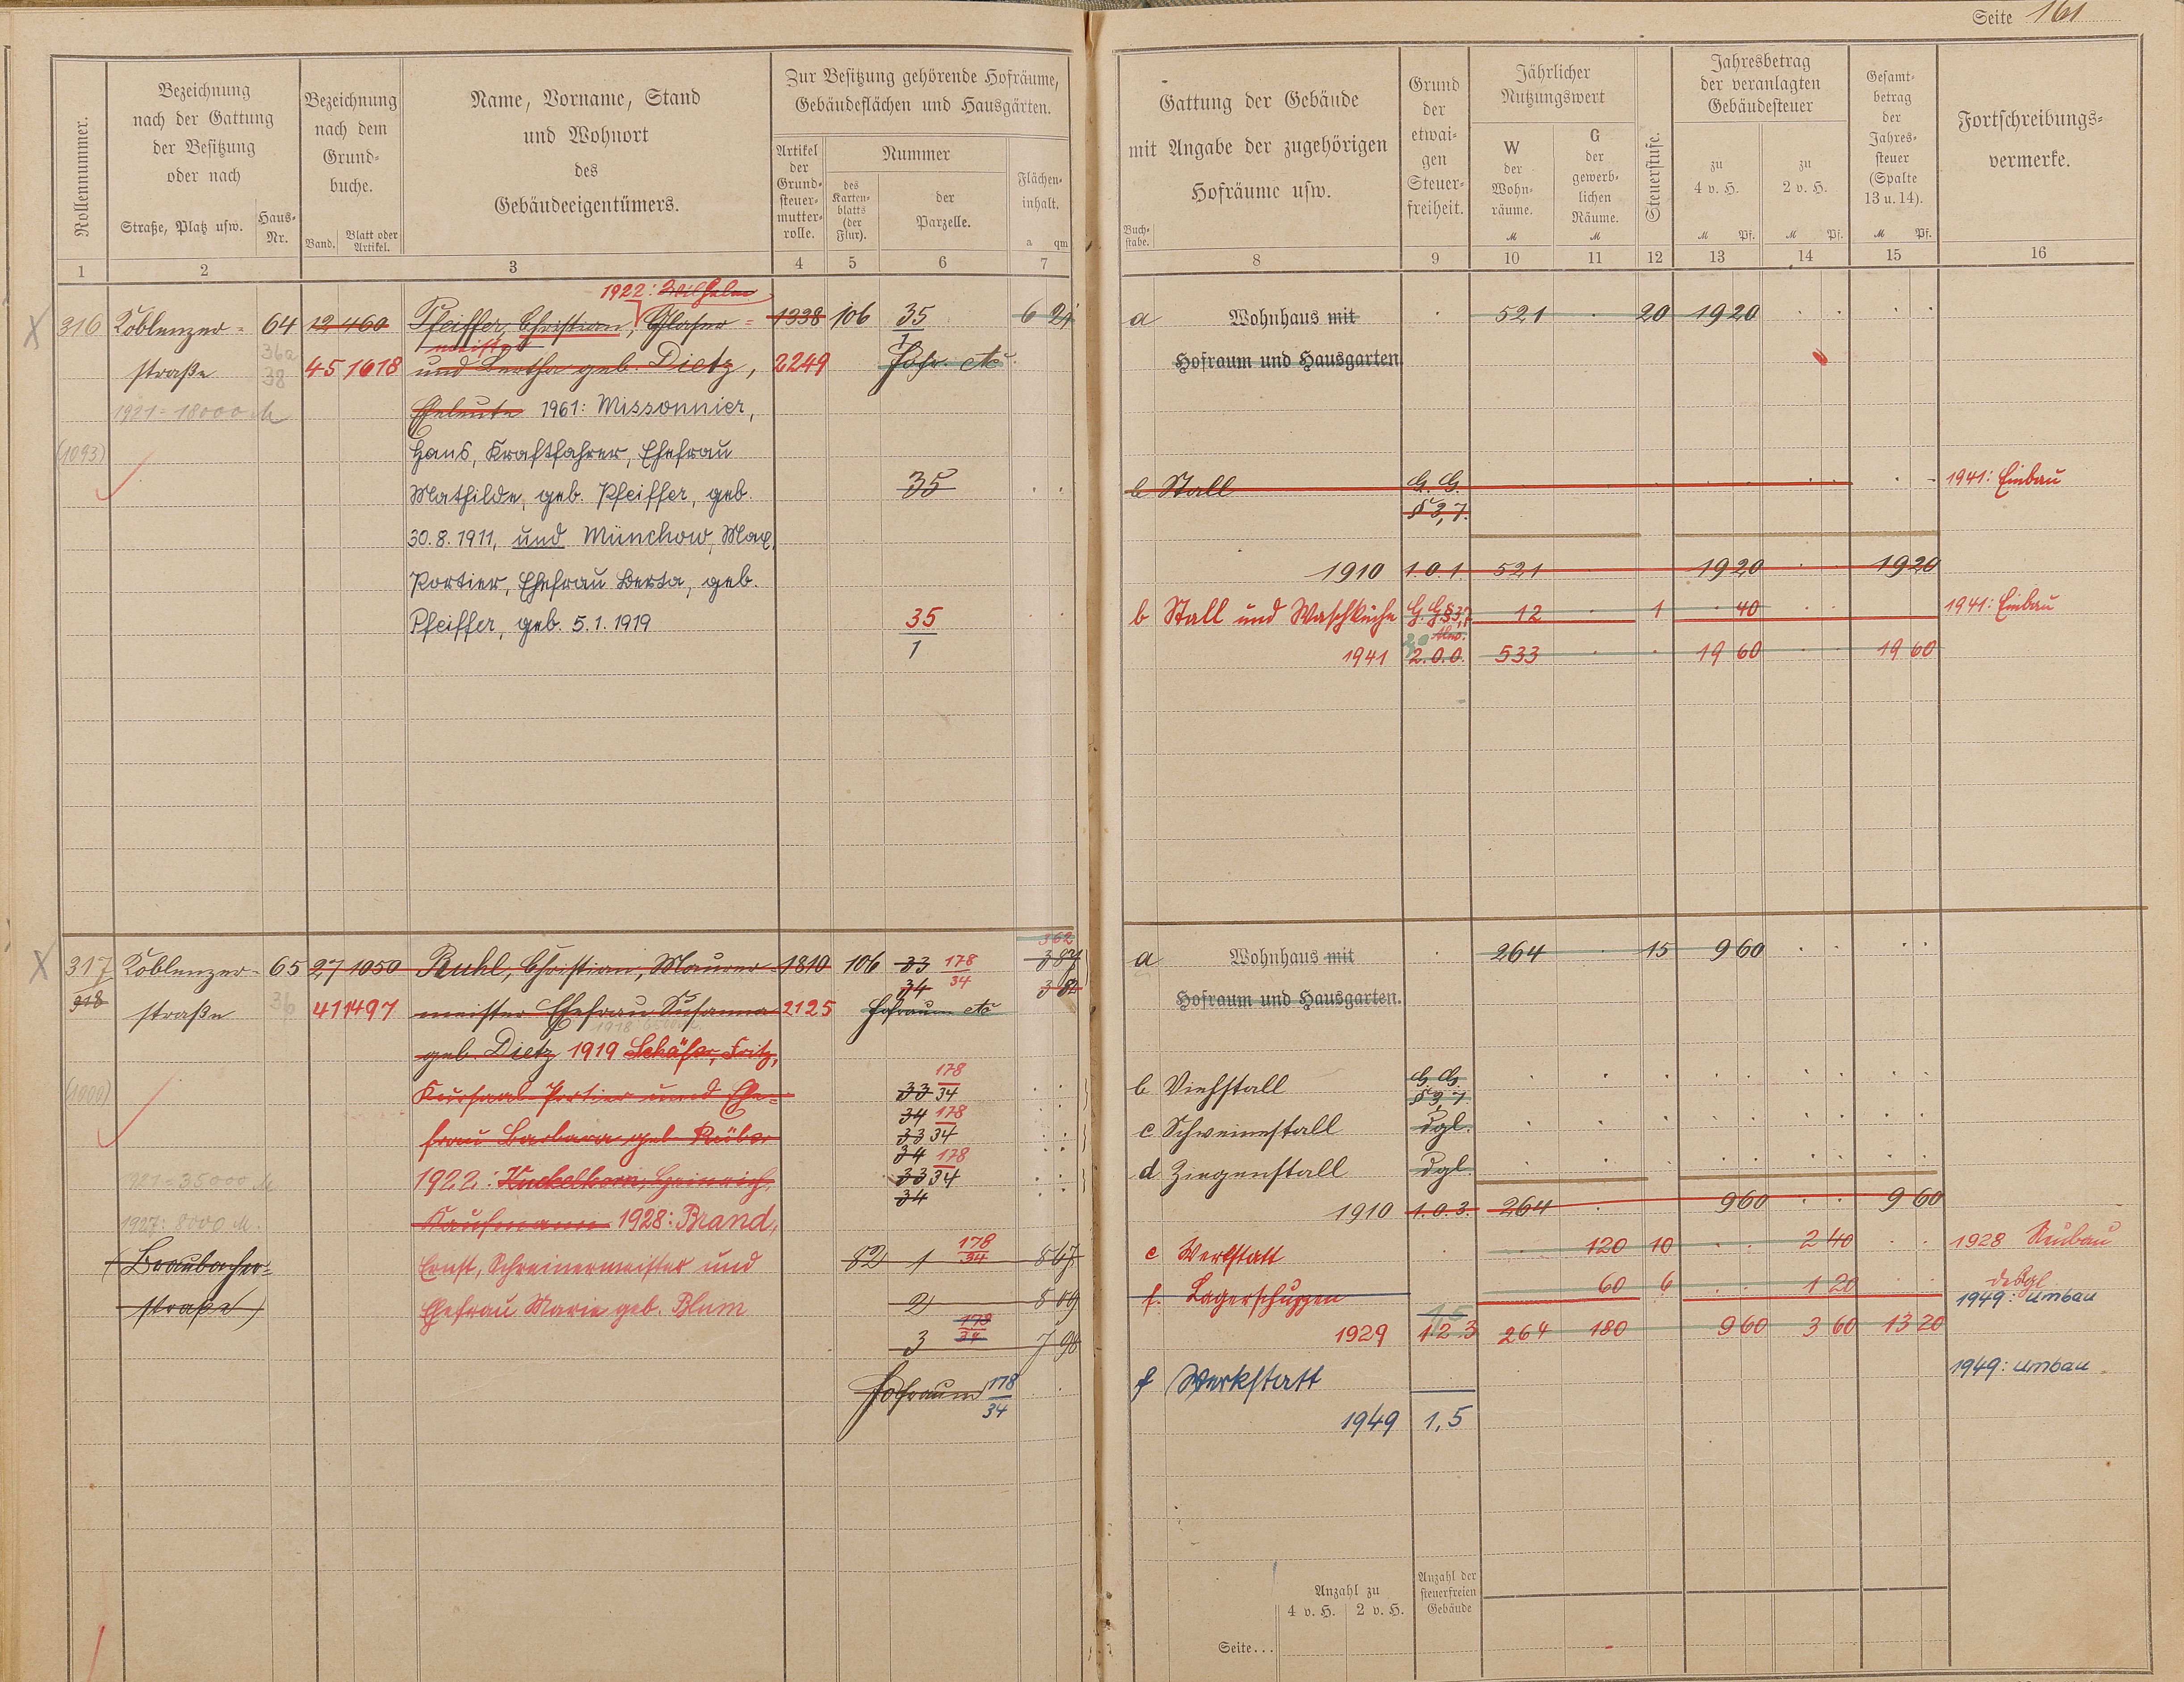 Seite 161
Rollennummer.
Bezeichnung
nach der Gattung
der Besitzung
oder nach
Straße, Platz usw.
Haus-
Nr.
Bezeichnung
nach dem
Grund-
buche.
Band.
Blatt oder
Artikel.
Name, Vorname, Stand
und Wohnort
des
Gebäudeeigentümers.
Zur Besitzung gehörende Hofräume,
Gebäudeflächen und Hausgärten.
Artikel
der
Grund-
steuer-
mutter-
rolle.
Nummer
des
Karten-
blatts
(der
Flur).
der
Parzelle.
Flächen-
inhalt.
a qm
1 2 3 4 5 6 7
Gattung der Gebäude
mit Angabe der zugehörigen
Hofräume usw.
Buch-
stabe.
Grund
der
etwai-
gen
Steuer-
freiheit.
Jährlicher
Nutzungswert
W
der
Wohn-
räume.
M
G
der
gewerb-
lichen
Räume.
M
Steuerstufe.
Jahresbetrag
der veranlagten
Gebäudesteuer
zu
4 v. H.
M Pf.
zu
2 v. H.
M Pf.
Gesamt-
betrag
der
Jahres-
steuer
(Spalte
13 u. 14).
M Pf.
Fortschreibungs-
vermerke.
8 9 10 11 12 13 14 15 16
1922: Wilhelm
316 Koblenzer- 64 12 460 Pfeiffer, Christian, Glaser- 1338 106 35 6 21
meister
1
straße 36a 38 45 1618 und Bertha geb. Dietz, 2249 Hofr. etc
1921 = 18000 M
Eheleute 1961: Missonnier,
(1093)
Hans, Kraftfahrer, Ehefrau
Mathilde, geb. Pfeiffer, geb. 35
30.8.1911, und Münchow, Max,
Portier, Ehefrau Berta, geb.
Pfeiffer, geb. 5.1.1919 35
1
a Wohnhaus mit 521 20 19 20
Hofraum und Hausgarten.
b Stall G. G. 1941: Einbau
§ 3,7.
1910 1.0.1. 521 19 20 19 20
b Stall und Waschküche G.G.§3,7 12 1 40 1941: Einbau
1941 2.0.0. 533 19 60 19 60
362
317 Koblenzer- 65 27 1050 Ruhl, Christian, Maurer- 1810 106 33 178 387
34 34 382
318 straße 36 41 1497 meister Ehefrau Susanna 2125 Hofraum etc
geb. Dietz 1919 Schäfer, Fritz,
(1090)
Kursaal-Portier und Ehe- 33 178
34 34
frau Barbara geb. Räuber 33 178
34 34
1921 = 35000 M
1922: Kuckelkorn, Heinrich, 33 178
34 34
1927: 8000 M.
Kaufmann 1928: Brand,
(Braubacher-
Ernst, Schreinermeister und 82 1 178 8 67
34
straße)
Ehefrau Marie geb. Blum 2 8 09
3 178 7 98
34
Hofraum 178
34
a Wohnhaus mit 264 15 9 60
Hofraum und Hausgarten.
b Viehstall G. G.
§ 3,7
c Schweinestall dgl.
d Ziegenstall dgl.
1910 1.0.3. 264 9 60 9 60
e Werkstatt 120 10 2 40 1928 Neubau
f. Lagerschuppen 60 6 1 20 desgl.
1949: Umbau
1929 1.2.3 264 180 9 60 3 60 13 20
f Werkstatt 1949: Umbau.
1949 1,5
Anzahl zu
4 v. H. 2 v. H.
Anzahl der
steuerfreien
Gebäude
Seite...